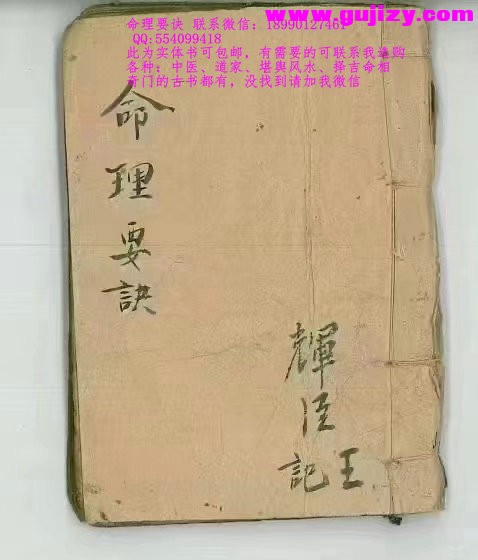 www.gujizy.com
命理要诀 联系微信：18990127461
QQ:554099418
此为实体书可包邮，有需要的可联系我选购
各种：中医、道家、堪舆风水、择吉命相
奇门的古书都有，没找到请加我微信
命理要訣
輝臣記
王